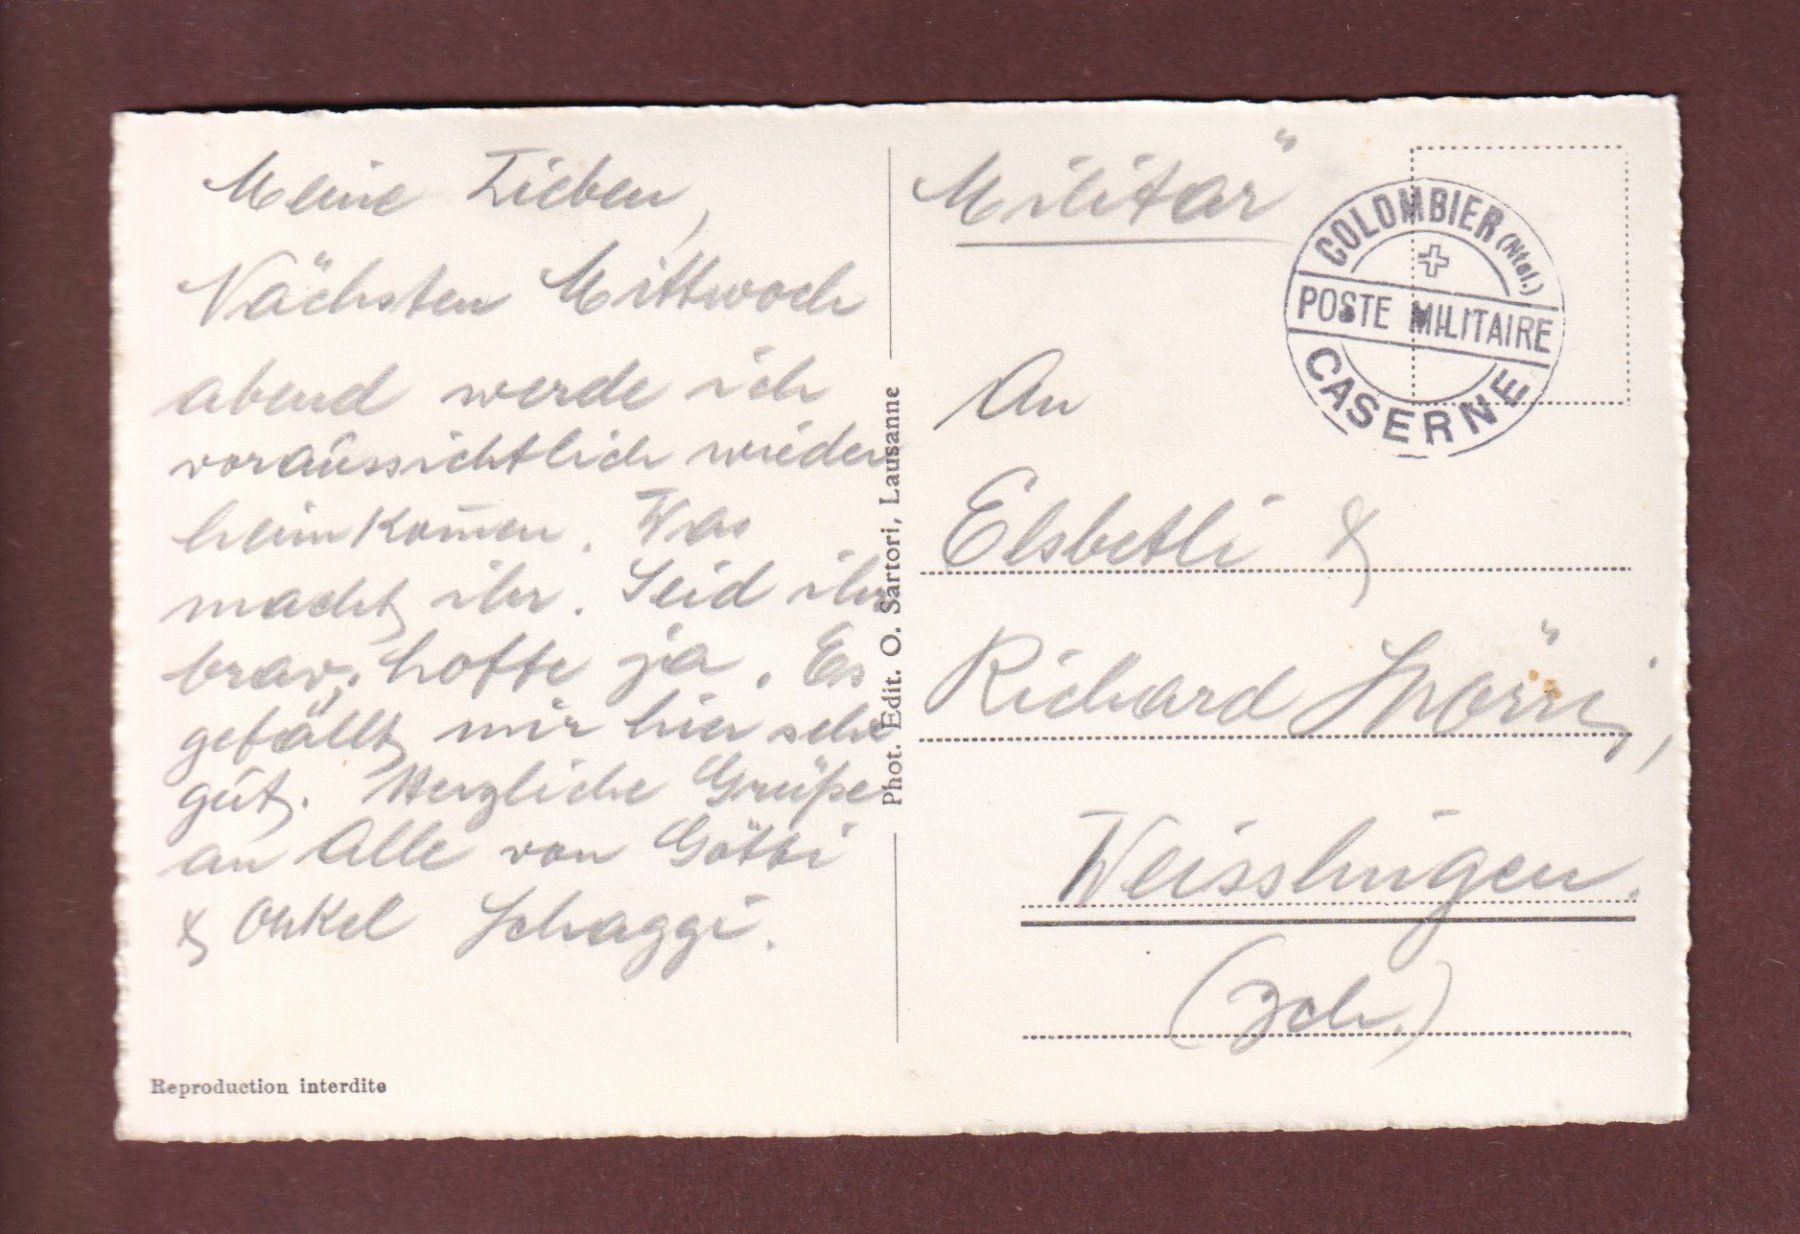 Meine Lieben,
Nächsten Mittwoch
abend werde ich
voraussichtlich wieder
heimkom̄en. Was
macht ihr. Seid ihr
brav, hoffe ja. Es
gefällt mir hier sehr
gut. Herzliche Grüße
an Alle von Götti
& Onkel Schaggi.
Reproduction interdite
Phot. Edit. O. Sartori, Lausanne
Militär
COLOMBIER (Ntel.)
POSTE MILITAIRE
CASERNE
An
Elsbetli &
Richard Spörri,
Weisslingen.
(Zch.)